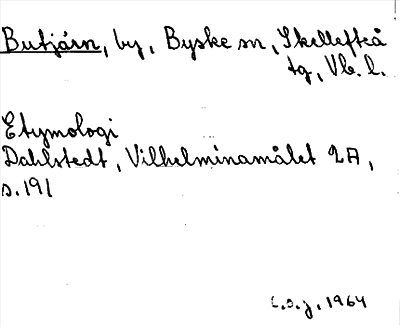 Butjärn, by, Byske sn, Skellefteå
tg, Vb. l.
Etymologi
Dahlstedt, Vilhelminamålet 2A,
s. 191
C.O.J. 1964